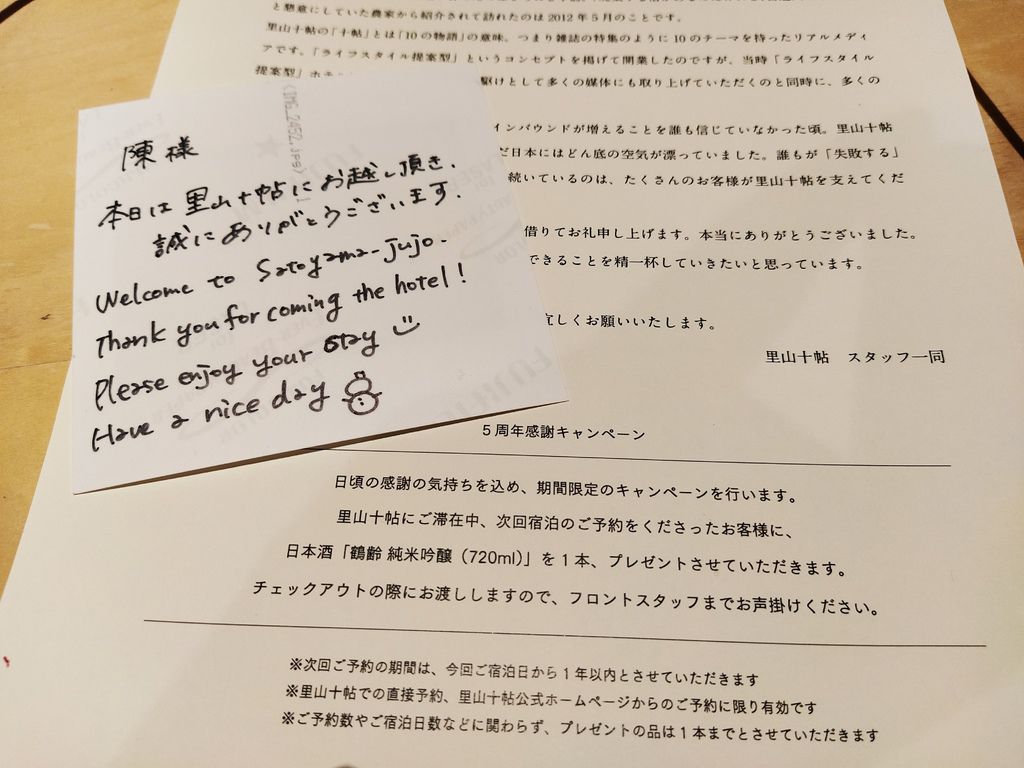 と懇意にしていた農家から紹介されて訪れたのは2012年5月のことです。
里山十帖の「十帖」とは「10の物語」の意味。つまり雑誌の特集のように10のテーマを持ったリアルメディ
アです。「ライフスタイル提案型」というコンセプトを掲げて開業したのですが、当時「ライフスタイル
提案型」ホテル
駆けとして多くの媒体にも取り上げていただくのと同時に、多くの
インバウンドが増えることを誰も信じていなかった頃。里山十帖
だ日本にはどん底の空気が漂っていました。誰もが「失敗する」
続いているのは、たくさんのお客様が里山十帖を支えてくだ
借りてお礼申し上げます。本当にありがとうございました。
できることを精一杯していきたいと思っています。
宜しくお願いいたします。
里山十帖 スタッフ一同
陳様
本日は里山十帖にお越し頂き、
誠にありがとうございます。
Welcome to Satoyama-jujo.
Thank you for coming the hotel!
Please enjoy your stay
Have a nice day
5周年感謝キャンペーン
日頃の感謝の気持ちを込め、期間限定のキャンペーンを行います。
里山十帖にご滞在中、次回宿泊のご予約をくださったお客様に、
日本酒「鶴齢 純米吟醸（720ml）」を1本、プレゼントさせていただきます。
チェックアウトの際にお渡ししますので、フロントスタッフまでお声掛けください。
※次回ご予約の期間は、今回ご宿泊日から1年以内とさせていただきます
※里山十帖での直接予約、里山十帖公式ホームページからのご予約に限り有効です
※ご予約数やご宿泊日数などに関わらず、プレゼントの品は1本までとさせていただきます